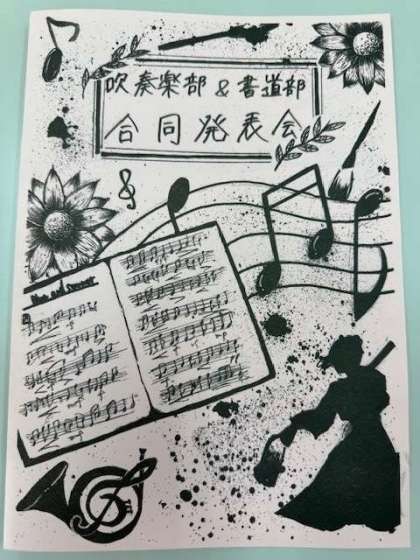 吹奏楽部&書道部
合同発表会